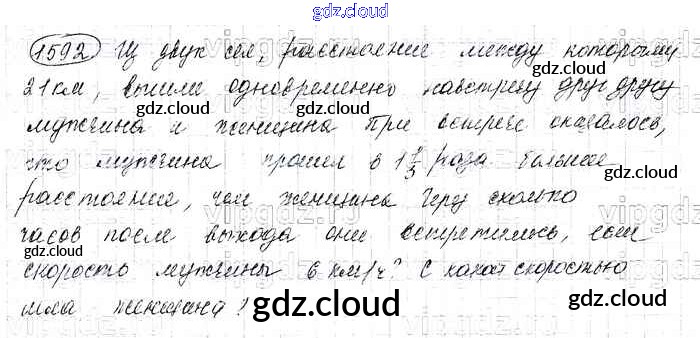 gdz.cloud
1592 Из двух сел, расстояние между которыми
21 км, вышли одновременно навстречу друг другу
gdz.cloud gdz.cloud
мужчина и женщина При встрече оказалось,
что мужчина прошел в 1 1/3 раза больше
gdz.cloud gdz.cloud
расстояние, чем женщина Через сколько
vipgdz.ru vipgdz.ru
часов после выхода они встретились, если
gdz.cloud gdz.cloud
скорость мужчины 6 км/ч? С какой скоростью
шла женщина?
gdz.cloud
gdz.cloud